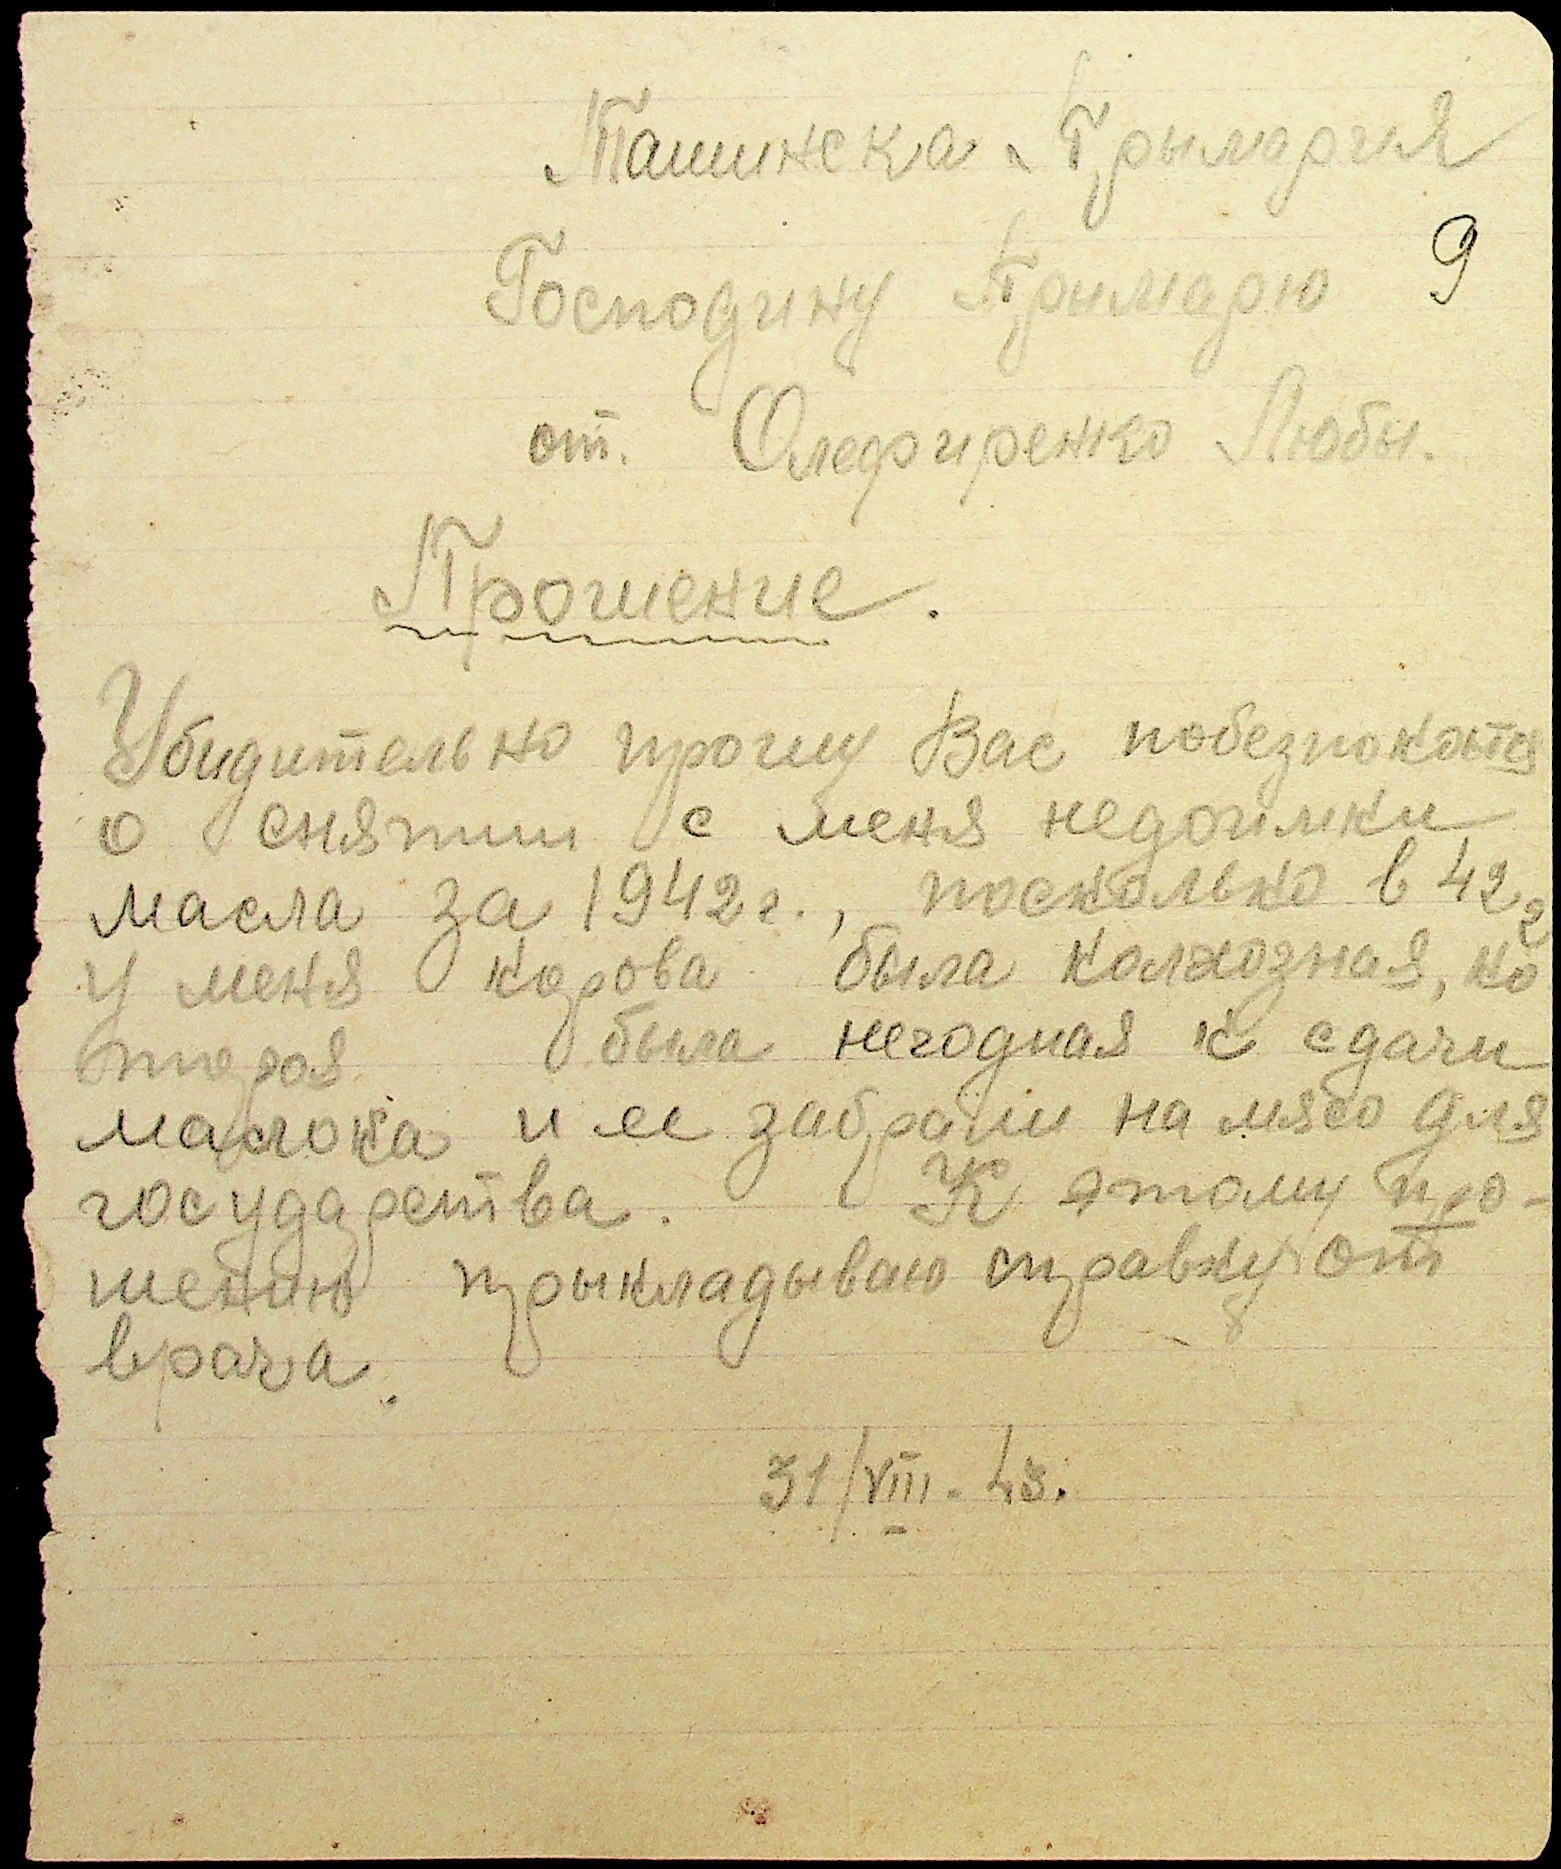 Ташинска Прымария
Господину Примарю 9
от. Олефиренко Любы.
Прошение.
Убидительно прошу Вас побезпокоится
о снятии с меня недоимки
масла за 1942г., посколько в 42г
у меня корова была колхозная, ко
торая была негодная к сдачи
малока и ее забрали на мясо для
государства. К этому про-
шению прыкладываю справку от
врача.
31/VIII. 43.